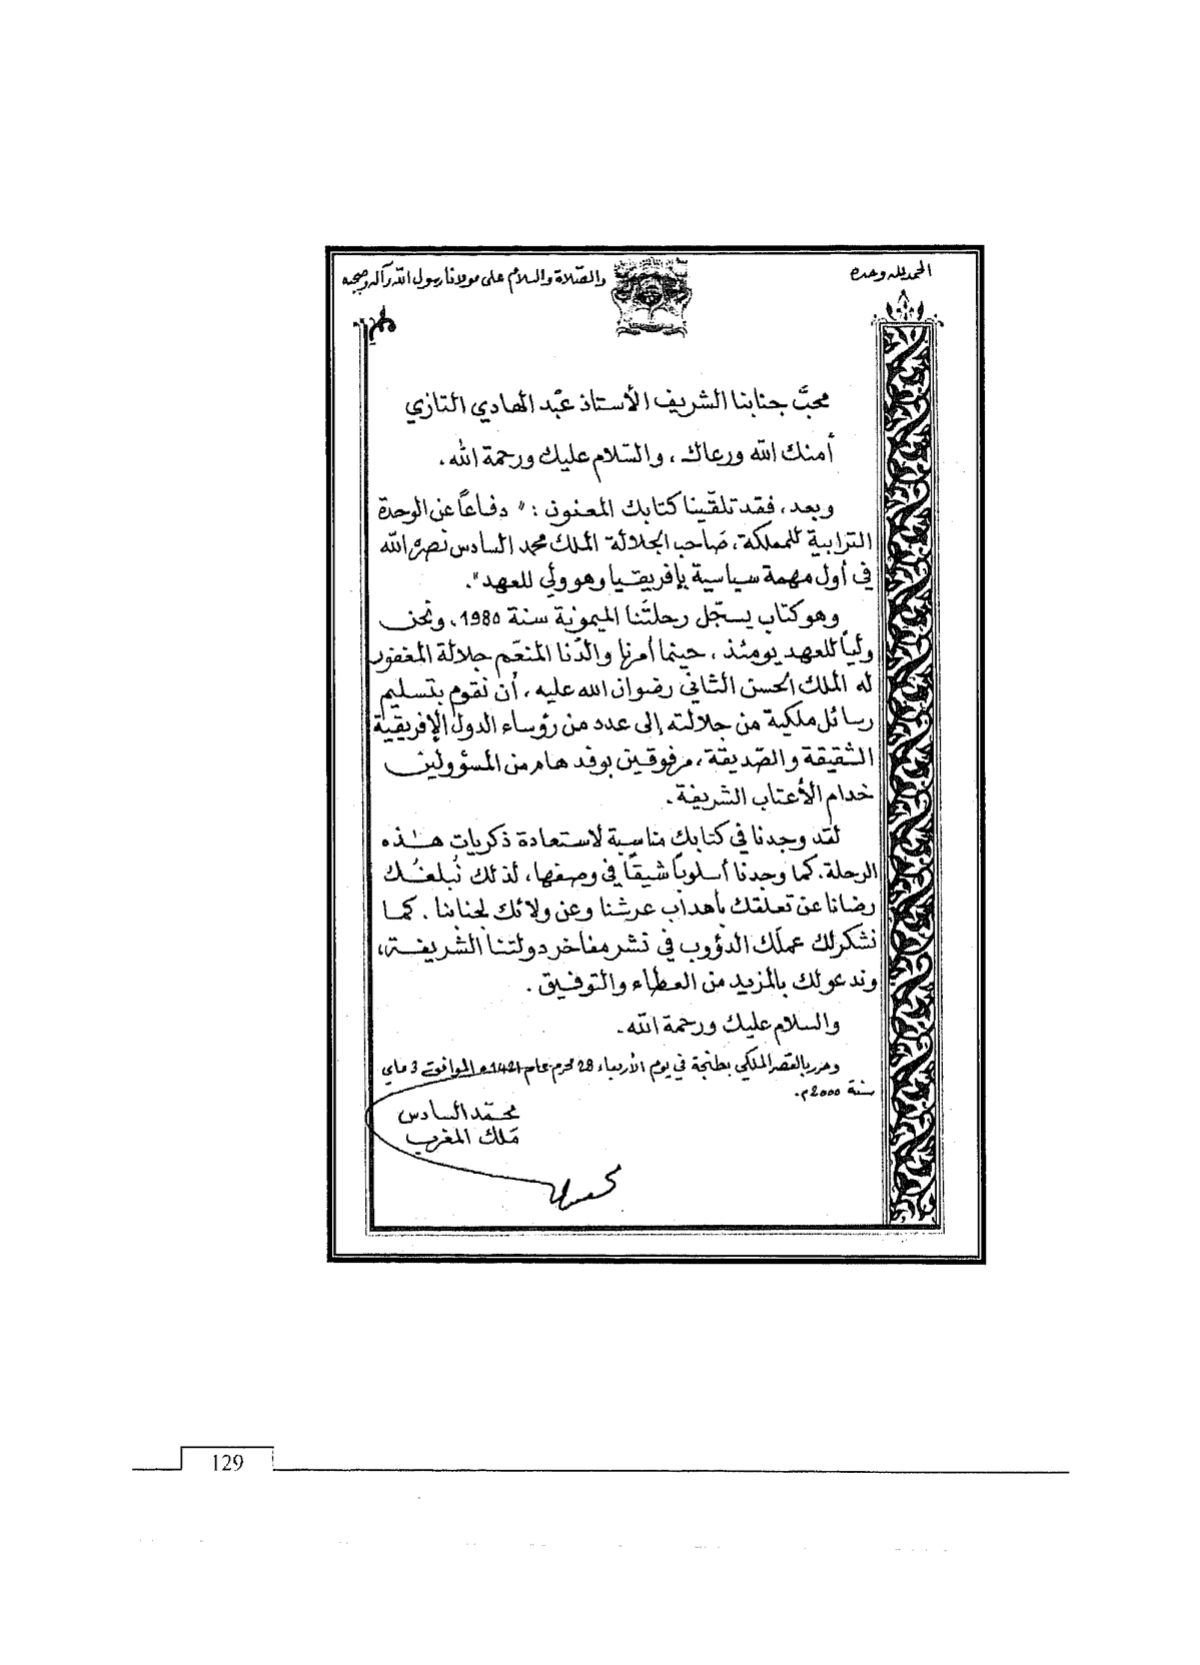 الحمد لله وحده
والصّلاة والسلام على مولانا رسول الله وآله وصحبه
محبَّ جنابنا الشريف الأستاذ عبد الهادي التازي
أمنك الله ورعاك، والسّلام عليك ورحمة الله.
وبعد، فقد تلقّينا كتابك المعنون : " دفاعاً عن الوحدة
الترابية للمملكة، صاحب الجلالة الملك محمد السادس نصره الله
في أول مهمة سياسية بإفريقيا وهو ولي للعهد".
وهو كتاب يسجّل رحلتنا الميمونة سنة 1980، ونحن
ولياً للعهد يومئذ، حينما أمرنا والدنا المنعّم جلالة المغفور
له الملك الحسن الثاني رضوان الله عليه، أن نقوم بتسليم
رسائل ملكية من جلالته إلى عدد من رؤساء الدول الإفريقية
الشقيقة والصّديقة، مرفوقين بوفد هام من المسؤولين
خدام الأعتاب الشريفة.
لقد وجدنا في كتابك مناسبة لاستعادة ذكريات هذه
الرحلة. كما وجدنا أسلوباً شيقاً في وصفها، لذلك نُبلغك
رضانا عن تعلقك بأهداب عرشنا وعن ولائك لجنابنا. كما
نشكر لك عملك الدؤوب في نشر مفاخر دولتنا الشريفة،
وندعو لك بالمزيد من العطاء والتوفيق.
والسلام عليك ورحمة الله.
وحرر بالقصر الملكي بطنجة في يوم الأربعاء 28 محرم عام 1421هـ الموافق 3 ماي
سنة 2000م.
محمّد السادس
ملك المغرب
129